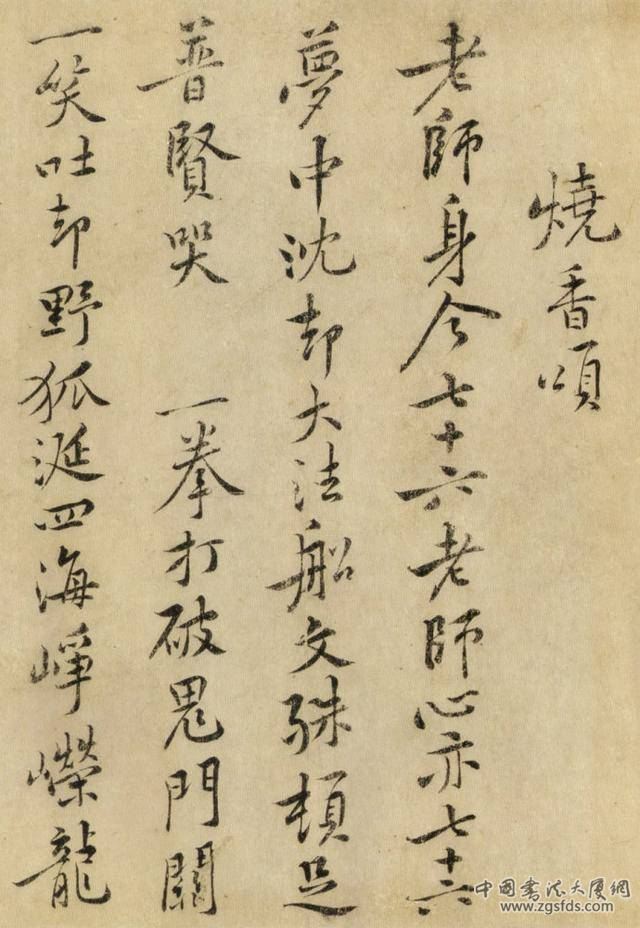 燒香頌
老師身今七十六老師心亦七十六
夢中沈却大法船文殊頓足
普賢哭 一拳打破鬼門關
一笑吐却野狐涎四海崢嶸龍
中国書法大厦網
www.zgsfds.com